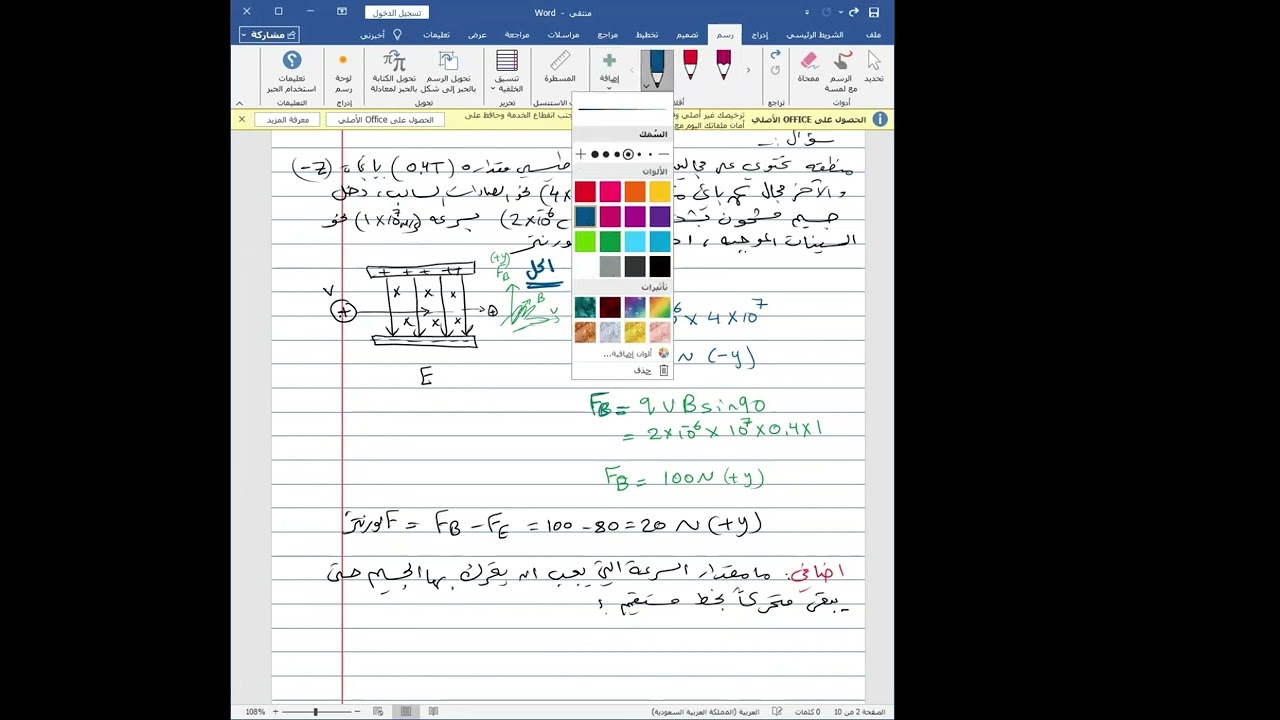 منتقي - Word
تسجيل الدخول
ملف الشريط الرئيسي إدراج رسم تصميم تخطيط مراجع مراسلات مراجعة عرض تعليمات أخبرني
مشاركة
تحديد
الرسم مع لمسة
ممحاة
أدوات
تراجع
إضافة
المسطرة
تنسيق الخلفية
تحرير
تحويل الرسم بالحبر إلى شكل
تحويل الكتابة بالحبر لمعادلة
تحويل
لوحة رسم
إدراج
تعليمات استخدام الحبر
التعليمات
الحصول على OFFICE الأصلي
الحصول على Office الأصلي
معرفة المزيد
السُمك
الألوان
تأثيرات
ألوان إضافية...
حذف
سؤال :
منطقه تحتوي على مجالين طيسي مقداره (0.4T) باتجاه (-Z)
والآخر مجال كهربائي (4x نحو الصادات السالب، دخل
جسيم مشحون بشح (2x10⁻⁶ بسرعه (1x10⁷ m/s) نحو
السينات الموجبه ، ا ورنتز
(+y)
F_B
الحل
B
V
+ + + ++
V
+
x x x
x x x
E
⁶ x 4 x 10⁷
N (-y)
F_B = q v B sin 90
= 2x10⁻⁶ x 10⁷ x 0.4 x 1
F_B = 100 N (+y)
F لورنتز = F_B - F_E = 100 - 80 = 20 N (+y)
اضافي: ما مقدار السرعة التي يجب ان يتحرك بها الجسيم حتى
يبقى متحركاً بخط مستقيم ؟
الصفحة 2 من 10
0 كلمات
العربية (المملكة العربية السعودية)
108%